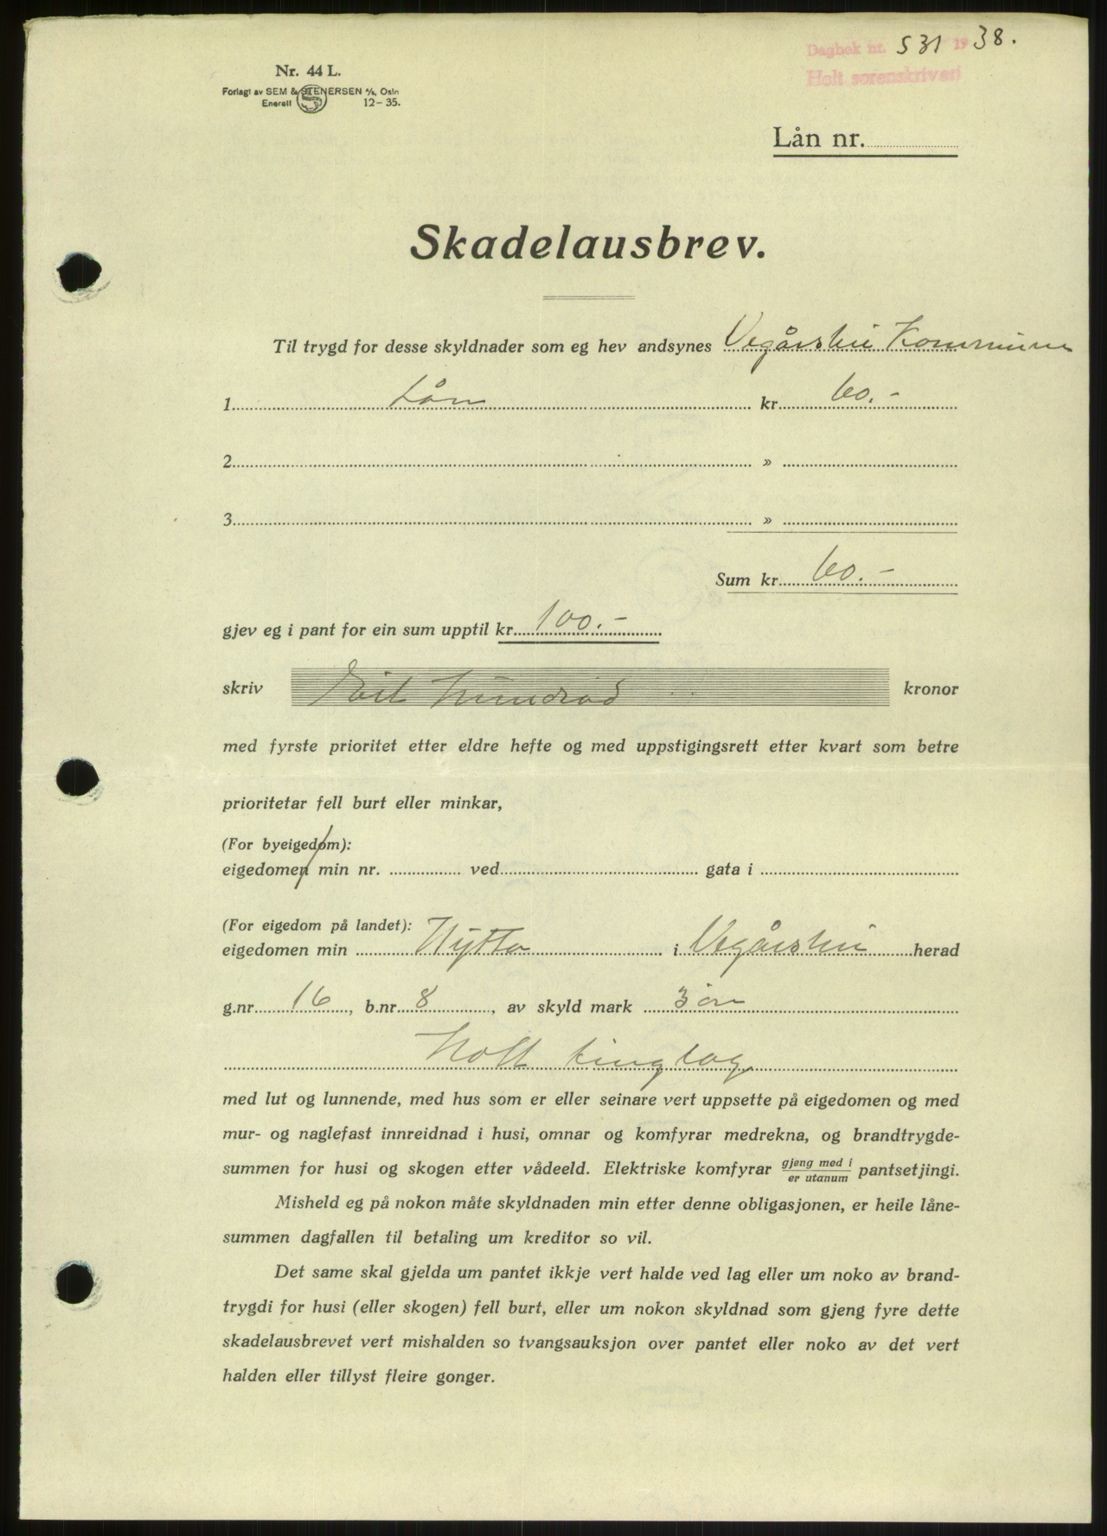 Dagbok nr. 531 1938.
Holt sorenskriveri
Nr. 44 L.
Forlagt av SEM & STENERSEN A/S, Oslo
Enerett 12-35.
Lån nr.
Skadelausbrev.
Til trygd for desse skyldnader som eg hev andsynes Vegårshei Kommune
1. Lån kr. 60.-
2. »
3. »
Sum kr. 60.-
gjev eg i pant for ein sum upptil kr. 100.-
skriv Eitt hundrad kronor
med fyrste prioritet etter eldre hefte og med uppstigingsrett etter kvart som betre
prioritetar fell burt eller minkar,
(For byeigedom):
eigedomen min nr. ved gata i
(For eigedom på landet):
eigedomen min Hytta i Vegårshei herad
g.nr. 16, b.nr. 8, av skyld mark 3 øre
Holt tinglag
med lut og lunnende, med hus som er eller seinare vert uppsette på eigedomen og med
mur- og naglefast innreidnad i husi, omnar og komfyrar medrekna, og brandtrygde-
summen for husi og skogen etter vådeeld. Elektriske komfyrar gjeng med i / er utanum pantsetjingi.
Misheld eg på nokon måte skyldnaden min etter denne obligasjonen, er heile låne-
summen dagfallen til betaling um kreditor so vil.
Det same skal gjelda um pantet ikkje vert halde ved lag eller um noko av brand-
trygdi for husi (eller skogen) fell burt, eller um nokon skyldnad som gjeng fyre dette
skadelausbrevet vert mishalden so tvangsauksjon over pantet eller noko av det vert
halden eller tillyst fleire gonger.